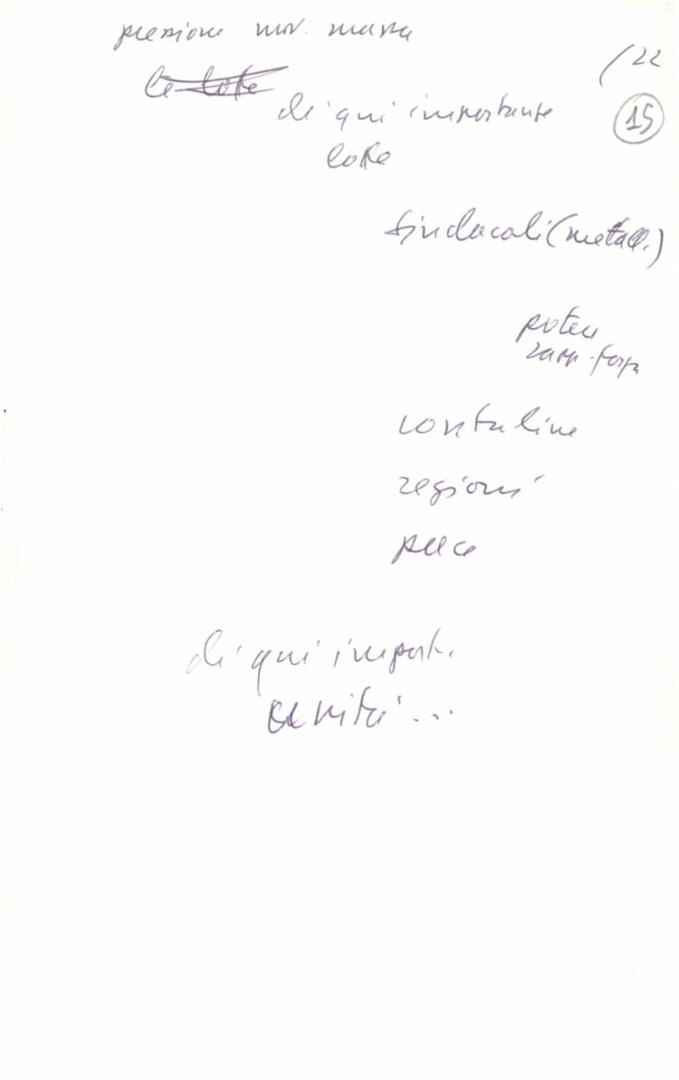 pressione mov. massa
/22
le lotte
di qui importante
15
lotte
sindacali (metall.)
potere
rapp. forza
contadine
regioni
pace
di qui import.
unità...